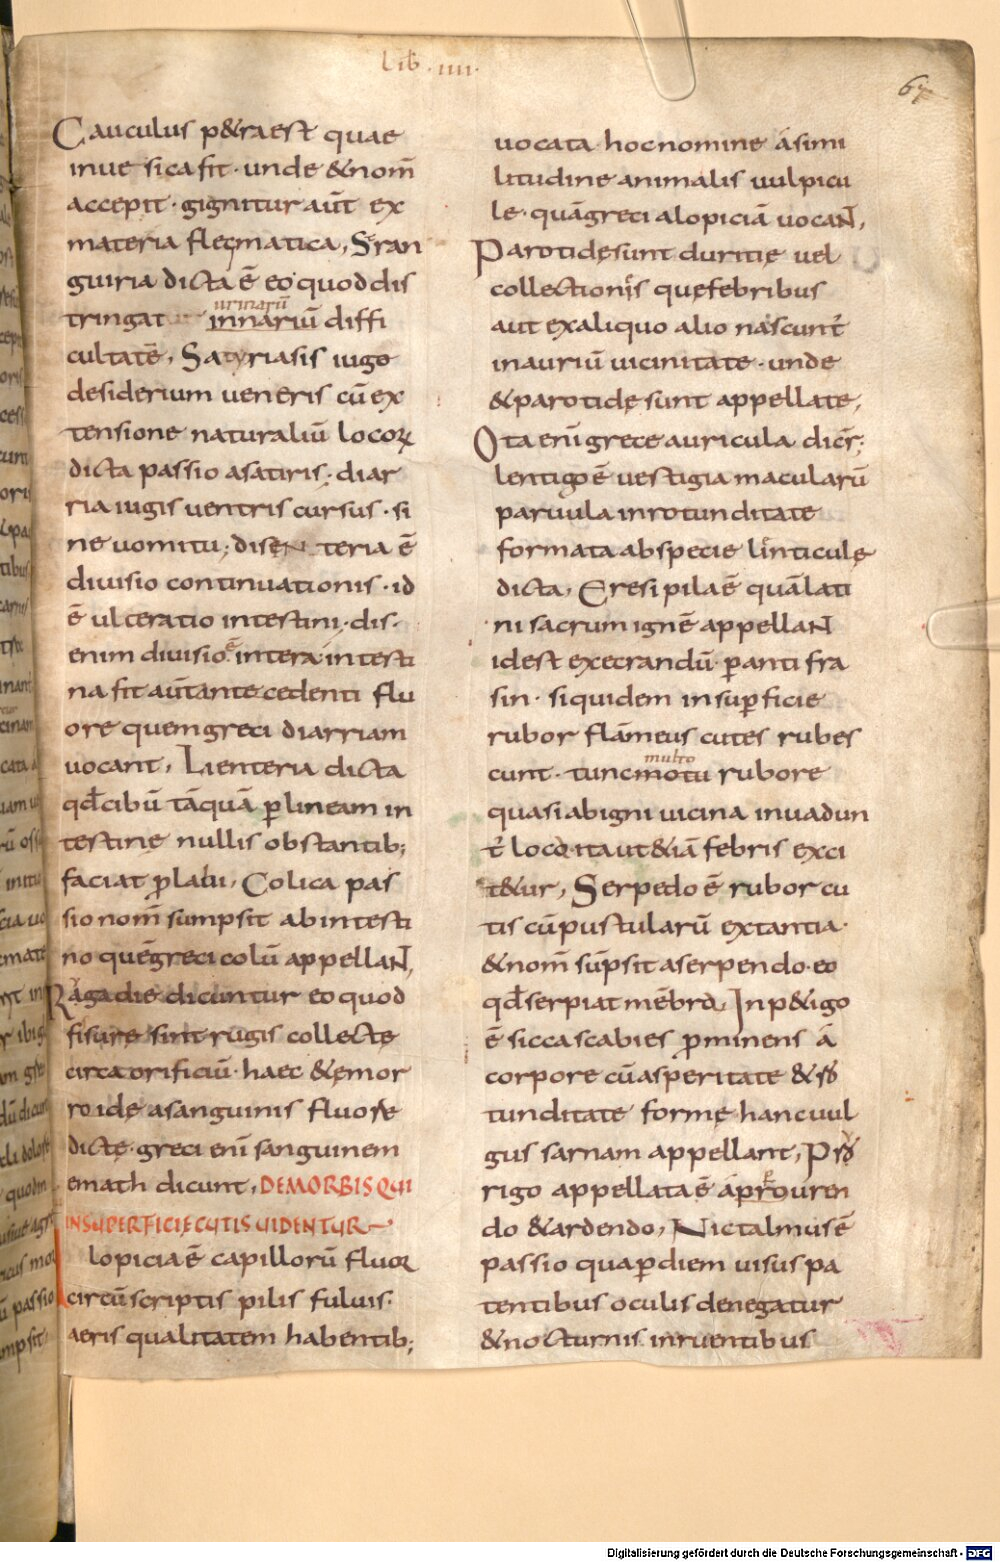 Lib. IIII.
67
Cauculus p&ra est quae
inuesica fit · unde & nom̄
accepit · gignitur aūt ex
materia flegmatica, Stran
guiria dicta ē eo quod dis
tringat urinarū innariū diffi
cultatē, Satyriasis iugo
desiderium ueneris cū ex
tensione naturaliū locoꝝ
dicta passio a satiris; diar
ria iugis uentris cursus · si
ne uomitu; disenteria ē
diuisio continuationis · id
ē ulceratio intestini · dis ·
enim diuisio ē intera intesti
na fit aūt ante cedenti flu
ore quem greci diarriam
uocant, Lienteria dicta
qđ cibū tāquā ꝑ lineam in
testinę nullis obstantib;
faciat ꝓlabi, Colica pas
sio nom̄ sumpsit ab intesti
no quē greci colū appellaɴт,
Ragadie dicuntur eo quod
fisure sint rugis collectę
circa orificiū · haec & emor
roide a sanguinis fluore
dictę · greci eni sanguinem
emath dicunt, DE MORBIS QUI
IN SUPERFICIE CUTIS UIDENTUR
lopicia ē capillorū fluor
circūscriptis pilis fuluis ·
aeris qualitatem habentib;
uocata hoc nomine a simi
litudine animalis uulpicu
le · quā greci alopiciā uocaɴт,
Parotidę sunt duritię uel
collectionis quę febribus
aut ex aliquo alio nascunt̄
in auriū uicinitate · unde
& parotidę sunt appellate,
Ota eni grece auricula dicr̄;
lentigo ē uestigia macularū
paruula in rotunditate
formata ab specie linticulę
dicta, Eresipila ē quā lati
ni sacrum ignē appellaɴт
id est execrandū ꝑ antifra
sin · siquidem in suꝑficie
rubor flāmeus cutes rubes
cunt · tunc multo motu rubore
quasi ab igni uicina inuadun
t̄ loca · ita ut & iā febris exci
t&ur, Serpedo ē rubor cu
tis cū pustularū extantia ·
& nom̄ sūpsit a serpendo · eo
qđ serpiat mēbra, Inp&igo
ē sicca scabies ꝓminens a
corpore cū asperitate & ro
tunditate formę hanc uul
gus sarnam appellant, Pru
rigo appellata ē a ꝑouren
do & ardendo, Nictalmus ē
passio qua ꝑ diem uisus pa
tentibus oculis denegatur
& nocturnis inruentibus
Digitalisierung gefördert durch die Deutsche Forschungsgemeinschaft - DFG